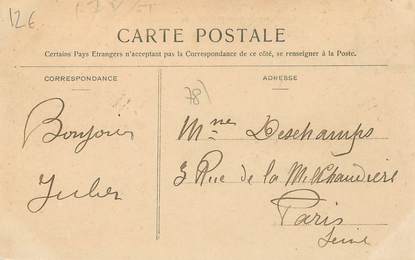 12€
CARTE POSTALE
Certains Pays Etrangers n'acceptant pas la Correspondance de ce côté, se renseigner à la Poste.
CORRESPONDANCE
ADRESSE
78)
Bonjour
Mme Deschamps
3 Rue de la
Paris
Seine